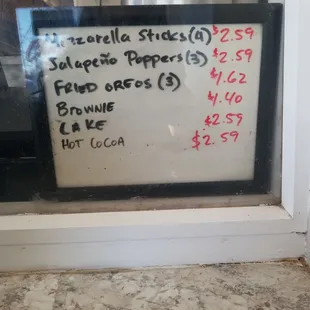 Mozzarella Sticks (4) $2.59
Jalapeño Poppers (3) $2.59
FRIED OREOS (3) $4.62
BROWNIE $4.40
CAKE $2.59
HOT COCOA $2.59